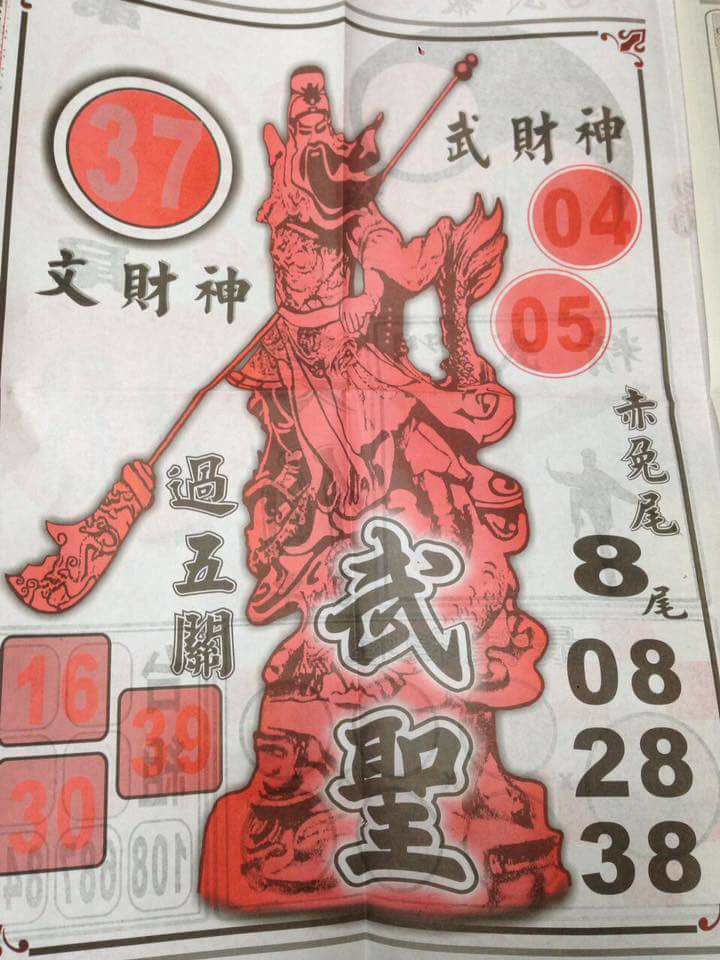 37
文財神
武財神
04
05
赤兔尾
8尾
08
28
38
過五關
16
39
30
武聖